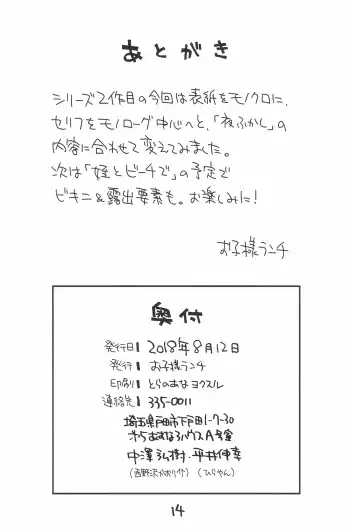 あとがき
シリーズ2作目の今回は表紙をモノクロに、
セリフをモノローグ中心へと、「夜ふかし」の
内容に合わせて変えてみました。
次は「姪とビーチで」の予定で
ビキニ&露出要素も。お楽しみに!
お子様ランチ
奥付
発行日 2018年8月12日
発行 お子様ランチ
印刷 とらのあな ヨクスル
連絡先 335-0011
埼玉県戸田市下戸田1-7-30
A号室
中澤弘樹・平井伸幸
(ひらやん)
14